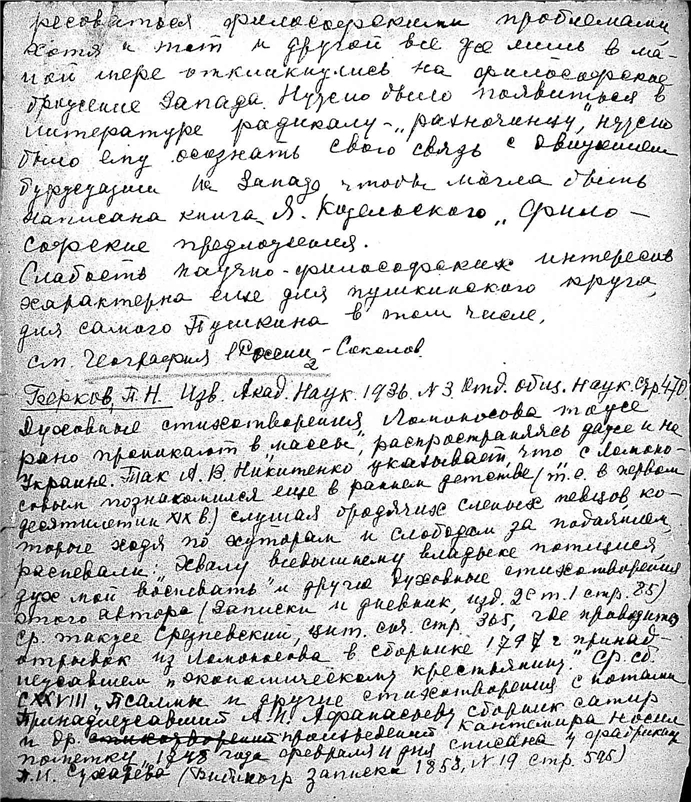 ресоваться философскими проблемами
хотя и тот и другой все же лишь в ма-
лой мере откликнулись на философское
брожение Запада. Нужно было появиться в
литературе радикалу - „разночинцу", нужно
было ему осознать свою связь с движением
буржуазии на Западе, чтобы могла быть
написана книга Я. Козельского „Фило-
софские предложения.
Слабость научно-философских интересов
характерна еще для пушкинского круга,
для самого Пушкина в том числе,
см. География в России - Соколов.
Берков, П.Н. Изв. Акад. Наук. 1936. N 3. Отд. общ. наук. стр. 470
Духовные стихотворения Ломоносова тоже
рано проникают в „массы", распространяясь даже и на
Украине. Так А.В. Никитенко указывает, что с Ломоно-
совым познакомился еще в раннем детстве (т.е. в первом
десятилетии XIX в.) слушая бродячих слепых певцов, ко-
торые ходя по хуторам и слободам за подаянием,
распевали: „Хвалу всевышнему владыке потщися,
дух мой воспевать" и другие духовные стихотворения
этого автора (Записки и дневник, изд. 2е т. I стр. 85)
ср. также Срезневский, цит. соч. стр. 365, где приводится
отрывок из Ломоносова в сборнике 1797 г принад-
лежавшем „экономическому крестьянину." Ср. сб.
CXXVIII „Псалмы и другие стихотворения с нотами
Принадлежавший А.И. Афанасьеву сборник сатир
и др. стихотворений произведений Кантемира носил
пометку „1748 года февраля 11 дня списана у фабрики
А.И. Сухарева (Библиогр. записки 1858, N 19 стр. 595)